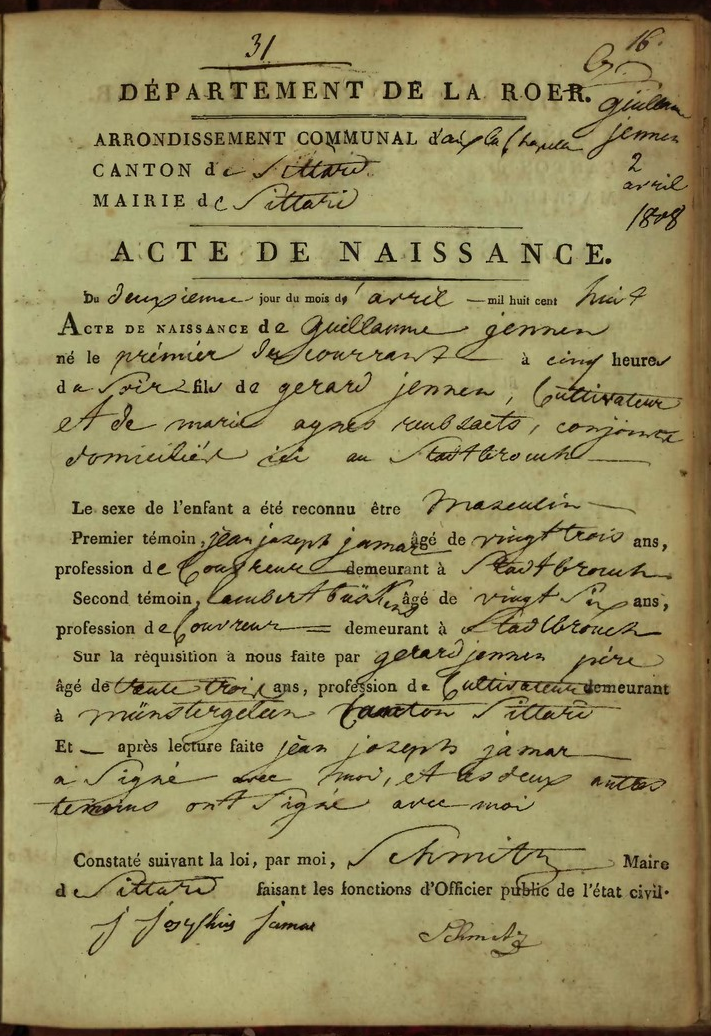 31
16.
DÉPARTEMENT DE LA ROER.
guillaume
jennen
2
avril
1808
ARRONDISSEMENT COMMUNAL d'aix la Chapelle
CANTON de Sittard
MAIRIE de Sittard
ACTE DE NAISSANCE.
Du deuxieme jour du mois d'avril — mil huit cent huit
ACTE DE NAISSANCE de guillaume jennen
né le prémier du courrant à cinq heures
du Soir fils de gerard jennen, Cultivateur
et de marie agnes reubsaets, conjoints
domiciliés ici au Stadtbrouch
Le sexe de l'enfant a été reconnu être Masculin
Premier témoin, jean joseph jamar âgé de vingt trois ans,
profession de Couvreur demeurant à Stadtbrouch
Second témoin, lambert âgé de vingt Six ans,
profession de Couvreur demeurant à Stadbrouch
Sur la réquisition à nous faite par gerard jennen pére
âgé de trente trois ans, profession de Cultivateur demeurant
à münstergeleen Canton Sittard
Et — après lecture faite jean joseph jamar
a Signé avec moi, et deux autres
temoins ont Signé avec moi
Constaté suivant la loi, par moi, Schmitz Maire
de Sittard faisant les fonctions d'Officier public de l'état civil.
j josephus jamar
Schmitz